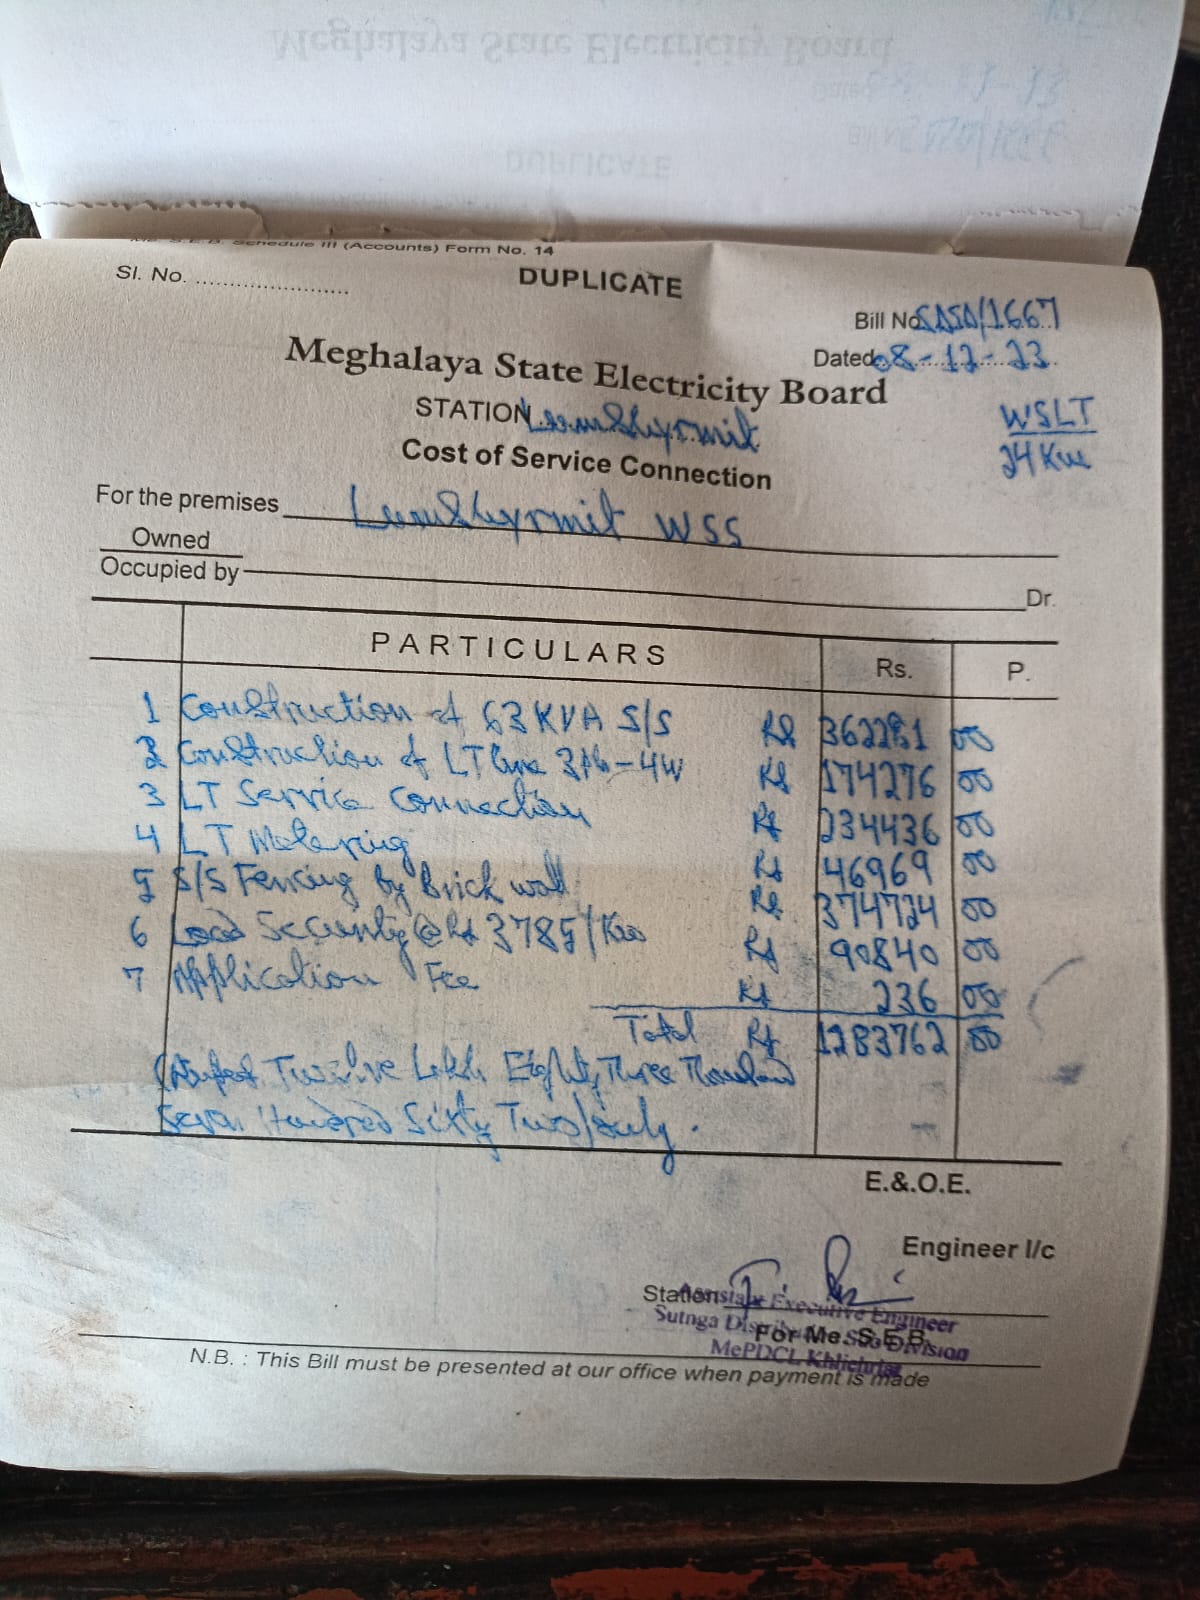 Me. S.E.B. Schedule III (Accounts) Form No. 14
Sl. No. ........................
DUPLICATE
Bill No SDSD/1667
Dated 08-12-23
Meghalaya State Electricity Board
STATION Lumshyrmit
WSLT
24 Kw
Cost of Service Connection
For the premises Lumshyrmit WSS
Owned
Occupied by
Dr.
PARTICULARS Rs. P.
1 Construction of 63 KVA S/S Rs 362281 00
2 Construction of LT line 3Ph-4W Rs 174276 00
3 LT Service Connection Rs 234436 00
4 LT Metering Rs 46969 00
5 S/S Fencing by Brick wall Rs 374724 00
6 Load Security @ Rs 3785/Kw Rs 90840 00
7 Application Fee Rs 236 00
Total Rs 1283762 00
(Rupees Twelve Lakh Eighty Three Thousand
Seven Hundred Sixty Two) only.
E.&.O.E.
Engineer I/c
Station
Assistant Executive Engineer
Sutnga Distribution Sub Division
For Me. S.E.B.
MePDCL Khliehriat
N.B. : This Bill must be presented at our office when payment is made